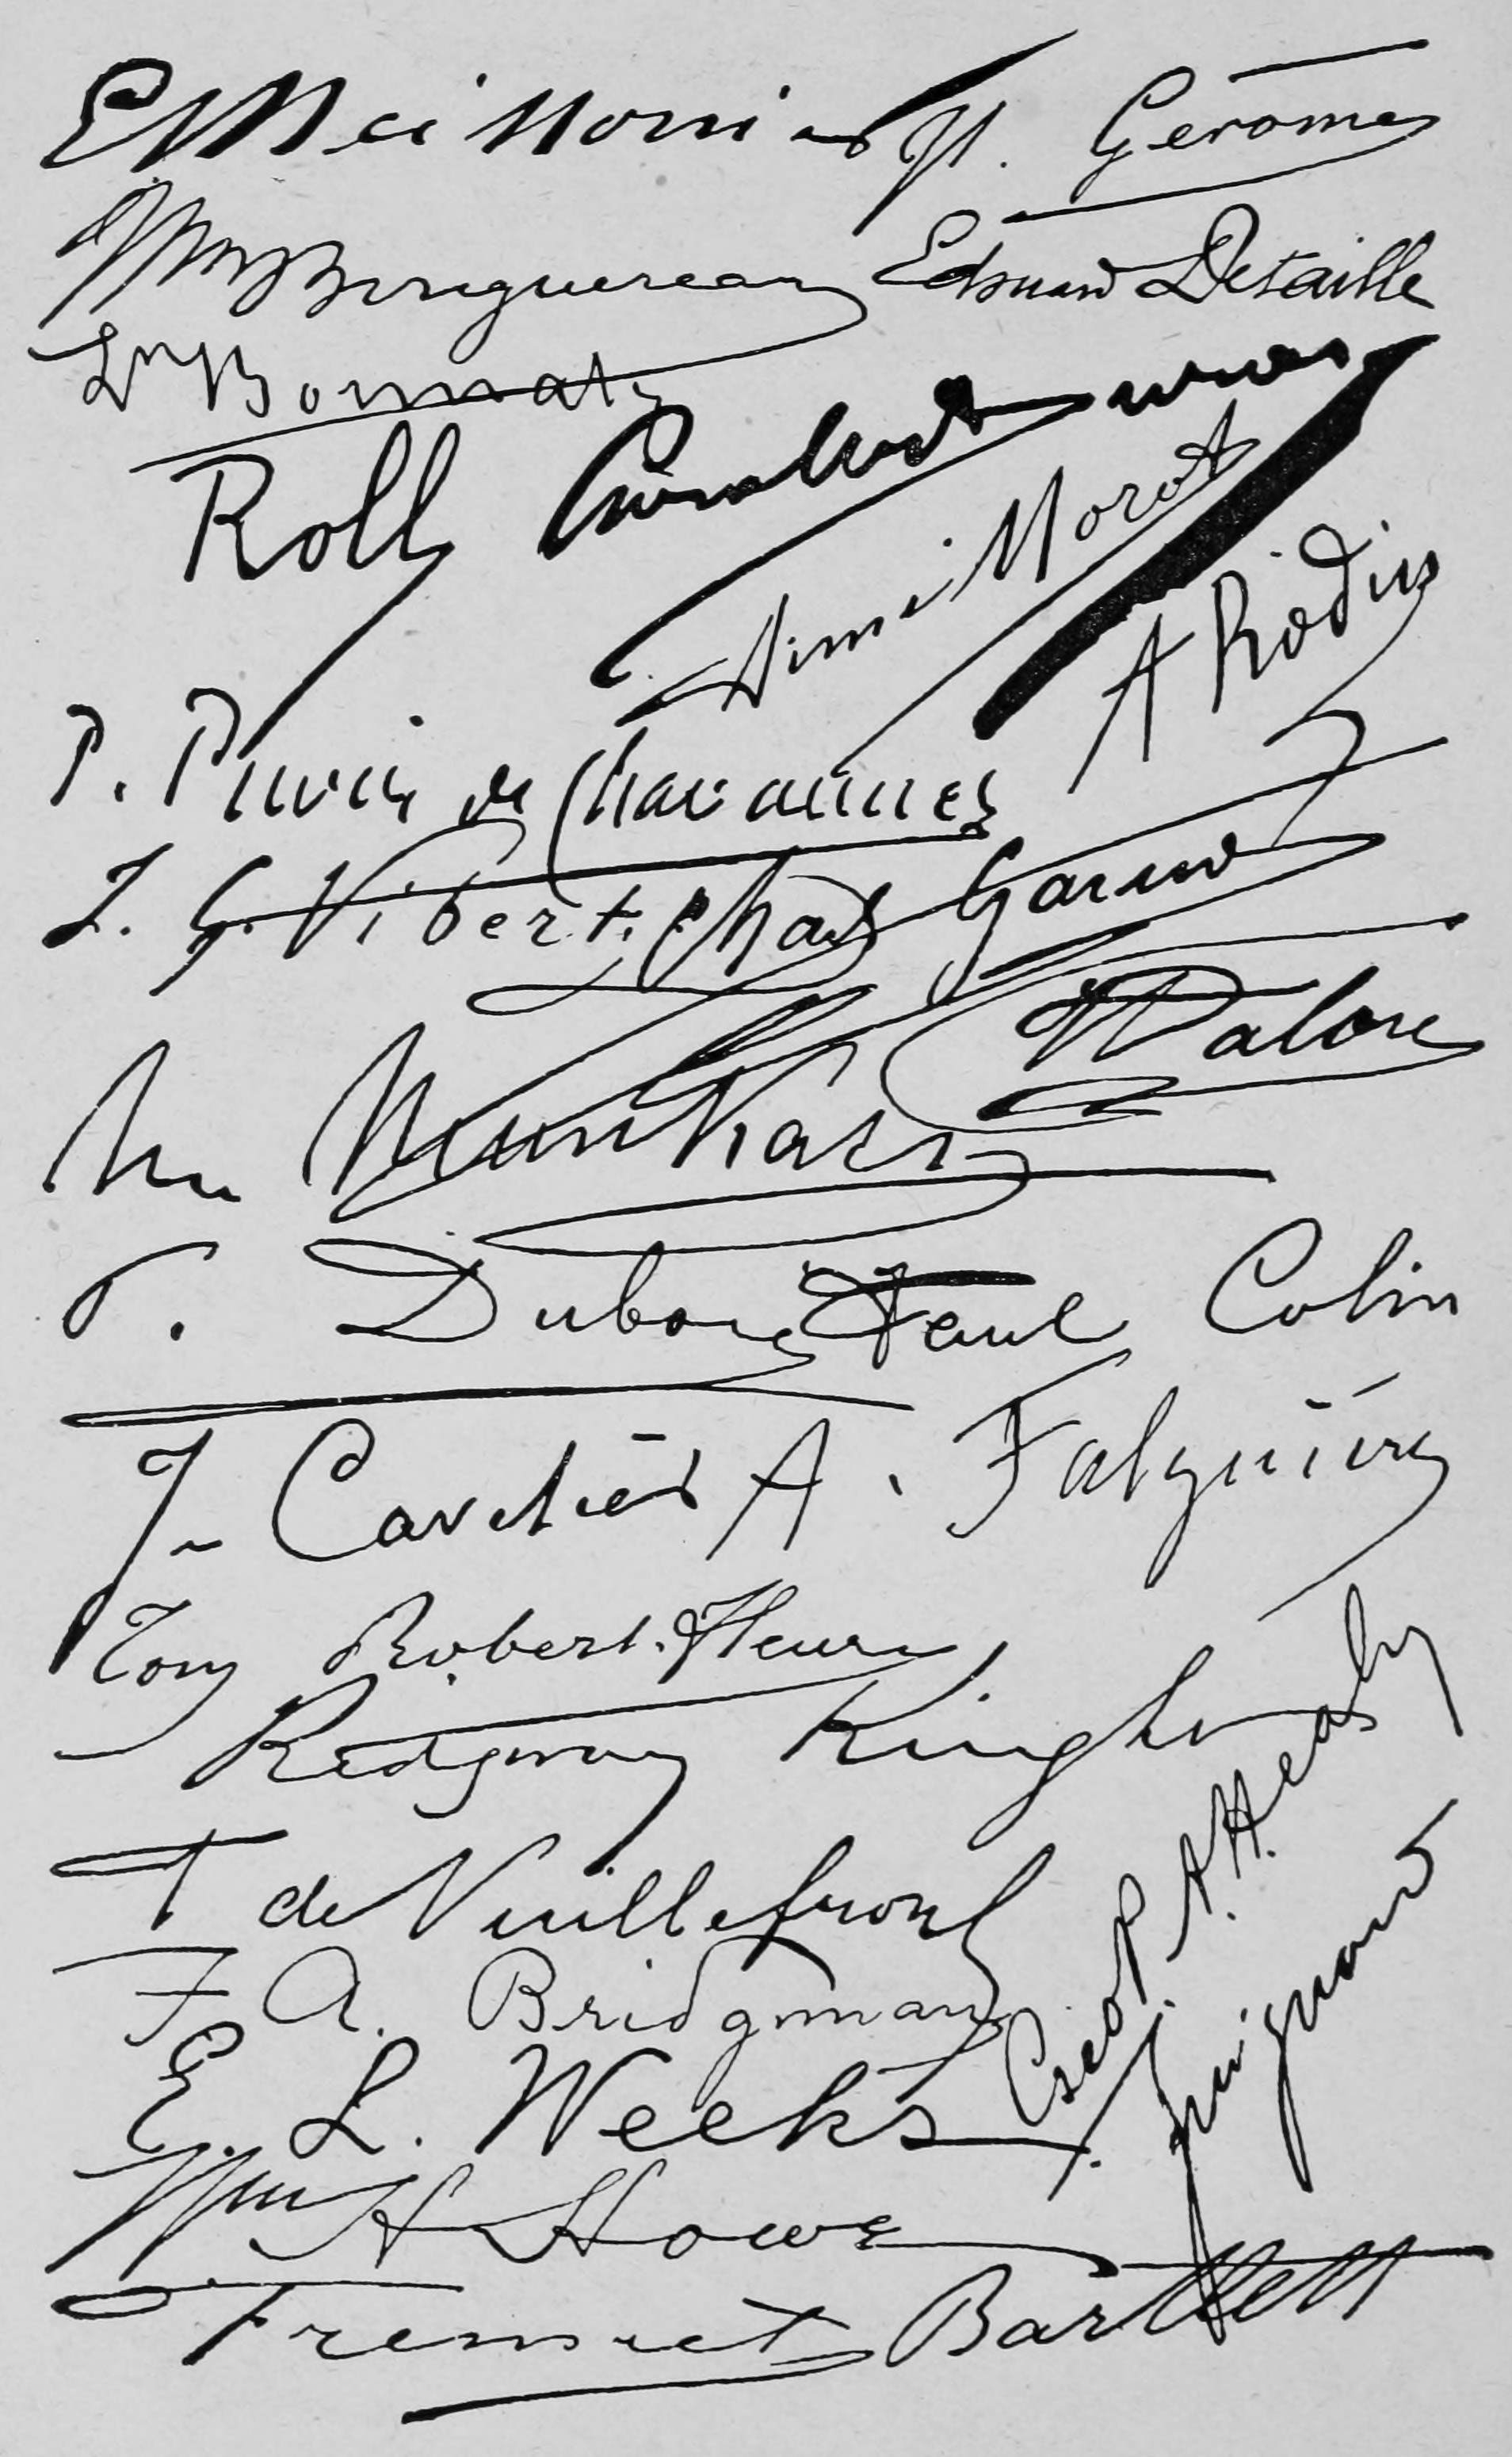 EMeissonier JL. Gérôme
Wm Bouguereau Edouard Detaille
Ln Bonnat
Roll Carolus Duran
Aimé Morot
A Rodin
P. Puvis de Chavannes
J. G. Vibert. Chas Garnier
M Munkacsy
P. Dubois Paul Colin
J. Cavelier A. Falguière
Tony Robert-Fleury
Ridgway Knight
Geo P. A. Healy
T de Vuillefroy
F A. Bridgman
J. Guignard
E. L. Weeks
Wm H Howe
Fremiet Bartlett